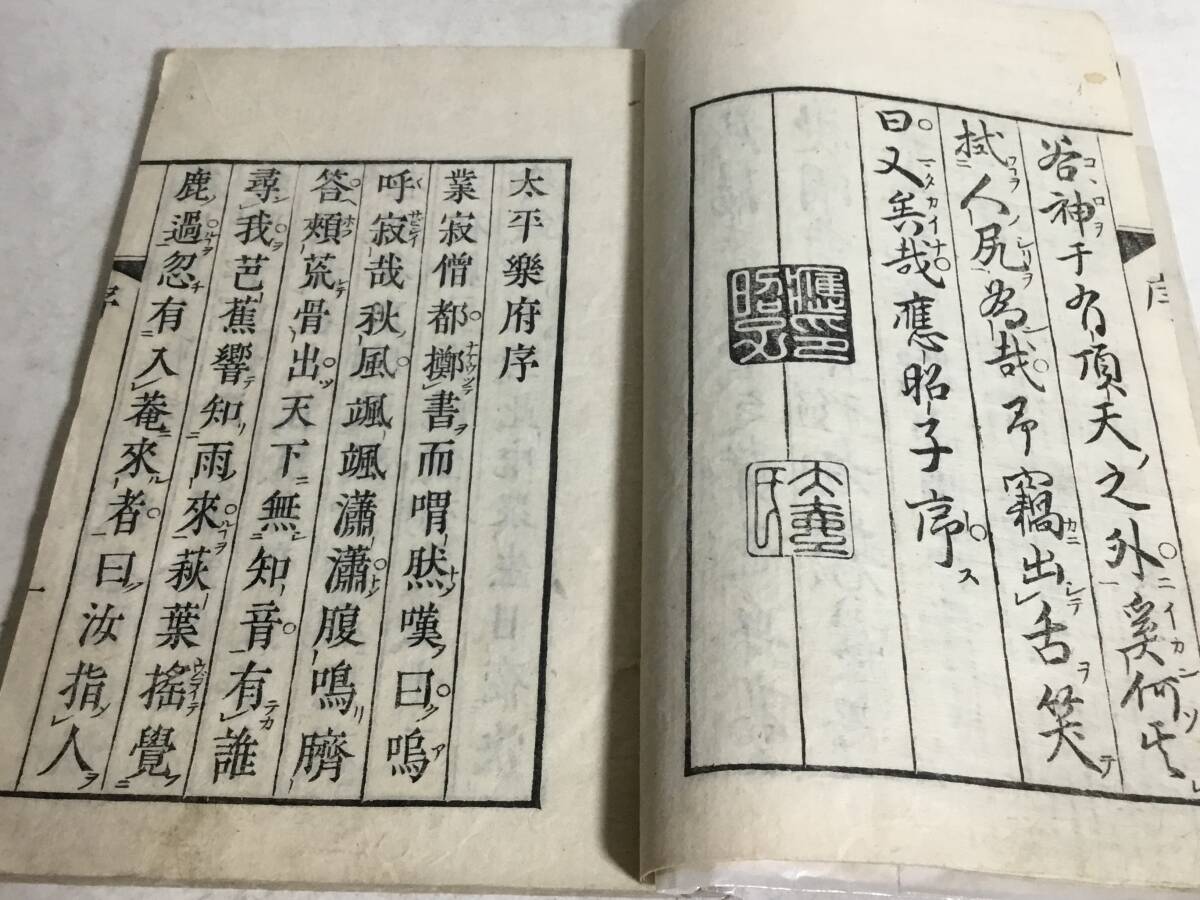 谷神于有頂天之外奚何其
拭人尻為哉予竊出舌笑
曰又矣哉應昭子序
太平樂府序
業寂僧都擲書而喟然嘆曰嗚
呼寂哉秋風颯颯瀟瀟腹鳴臍
答頰荒骨出天下無知音有誰
尋我芭蕉響知雨來萩葉搖覺
鹿過忽有入菴來者曰汝指人